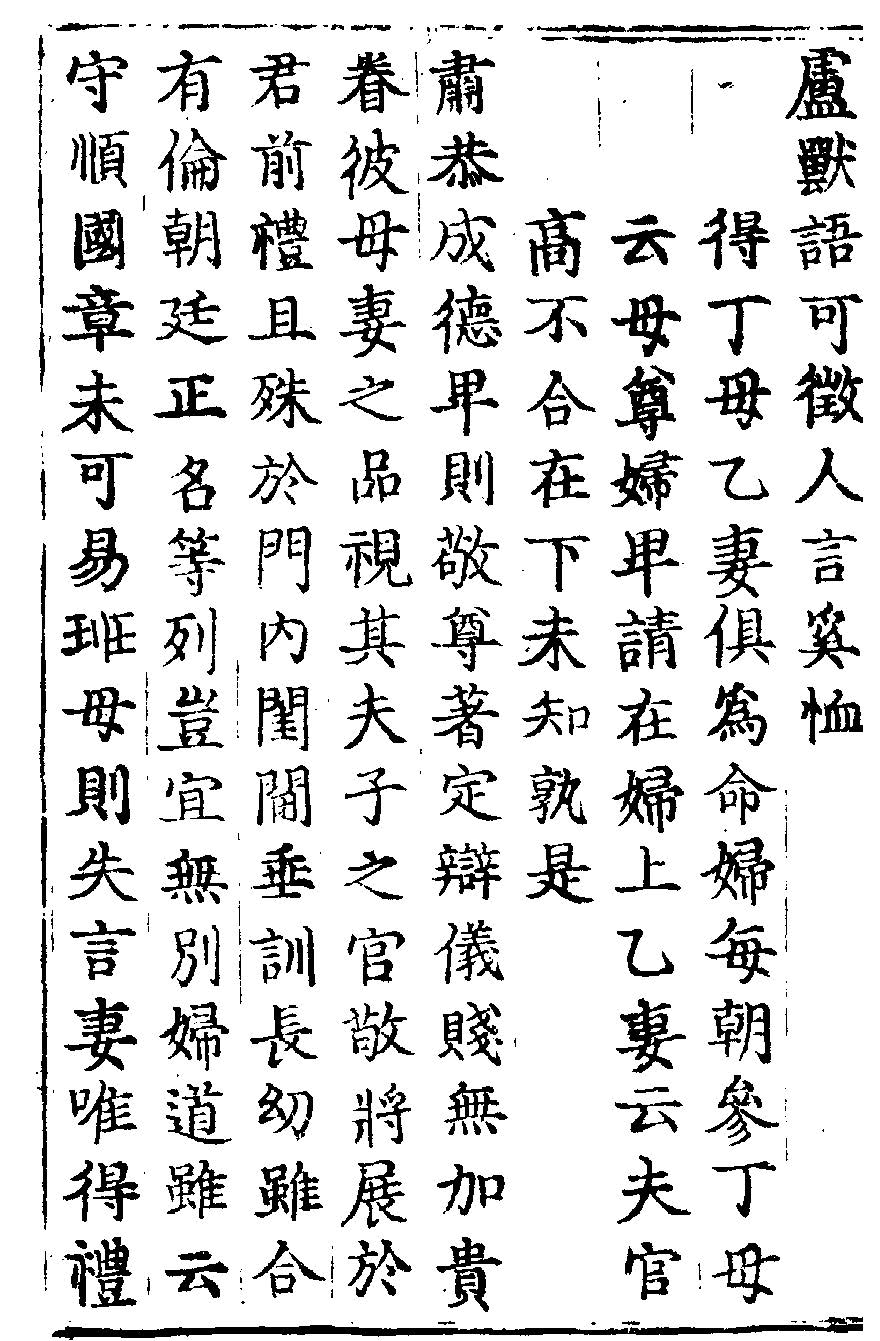 盧獸語可徵人言奚恤
得丁母乙妻俱爲命婦每朝參丁母
云母尊婦卑請在婦上乙妻云夫官
高不合在下未知孰是
肅恭成德卑則敬尊著定辯儀賤無加貴
眷彼母妻之品視其夫子之官敬將展於
君前禮且殊於門內閨閫垂訓長幼雖合
有倫朝廷正名等列豈宜無別婦道雖云
守順國章未可易班母則失言妻唯得禮